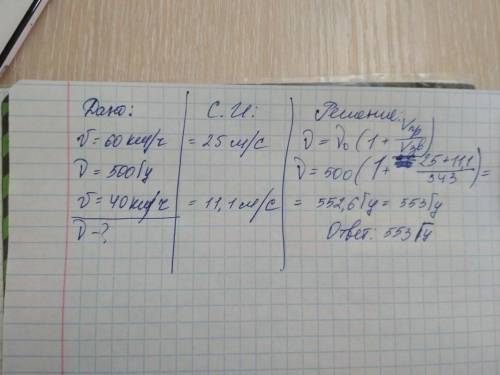 Дано:
v = 60 км/ч
ν = 500 Гц
v = 40 км/ч
ν - ?
С.И.:
= 25 м/с
= 11,1 м/с
Решение:
ν = ν₀ (1 + Vпр/Vзв)
ν = 500 (1 + 25+11,1/343) =
= 552,6 Гц = 553 Гц
Ответ: 553 Гц